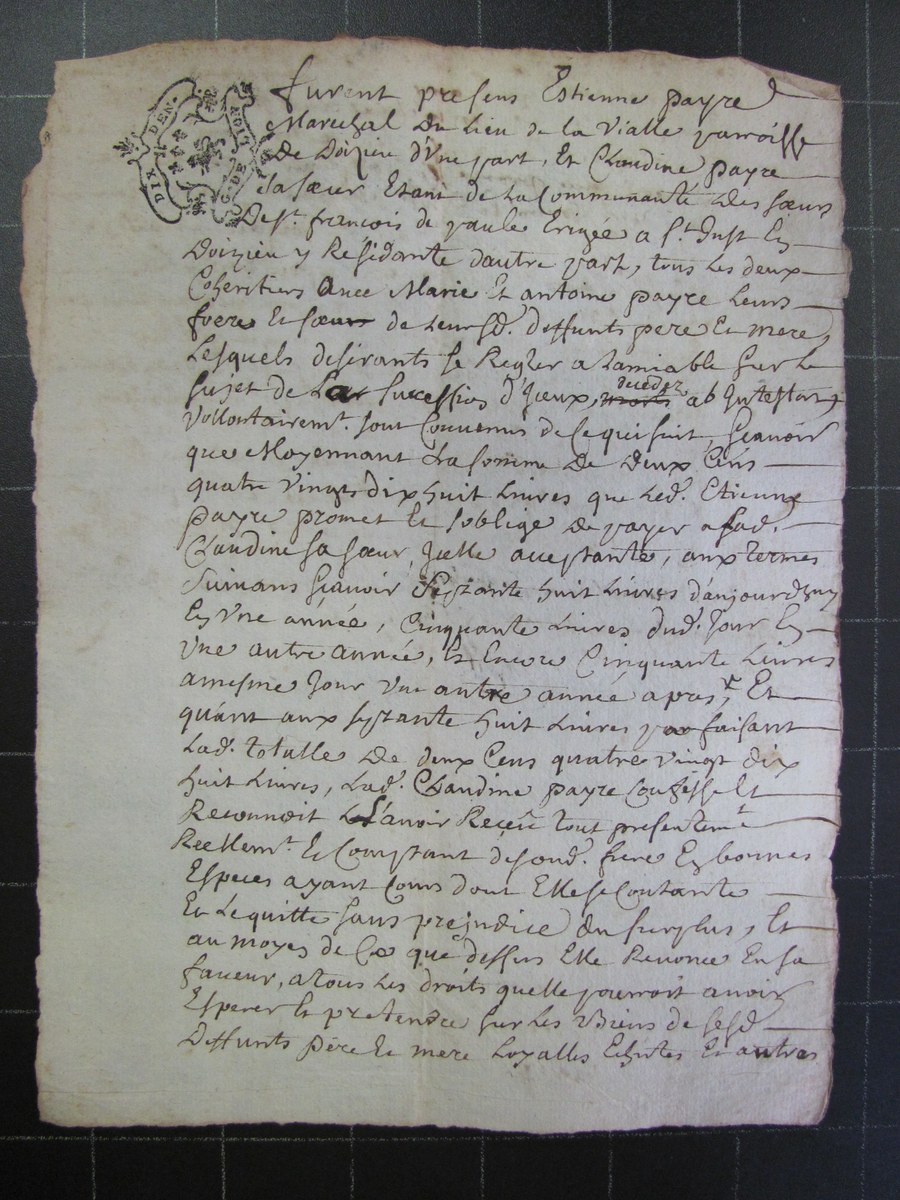 DIX DEN.
G. DE
furent presens Estienne payre
Marechal du Lieu de la Vialle parroisse
De Doizieu d'Une part, Et Claudine payre
sa soeur Etant de La Communauté Des soeurs
De st. francois de paule Erigée a st. Just En
Doizieu y Residante d'autre part, tous les deux
Coheritiers Avec Marie Et antoine payre Leurs
frere Et soeur de Leur sd. deffunts pere Et mere,
Lesquels desirants se Regler a Lamiable sur Le
sujet de La succession d'Iceux, morts decedez ab Intestat,
Vollontairemt. sont Convenus de Ce qui suit, scavoir
que Moyennant La somme De deux Cens
quatre vingts dix huit Livres que Led. Etienne
payre promet Et s'oblige de payer a sad.
Claudine sa soeur, Icelle acceptante, aux termes
suivans scavoir, septante huit Livres d'aujourdhuy
En Une année, Cinquante Livres dud. Jour En
Une autre année, Et Encore Cinquante Livres
a mesme Jour Une autre année apres, Et
quant aux septante huit Livres parfaisant
Lad. totalle de deux Cens quatre vingt dix
huit Livres, Lad. Claudine payre Confesse Et
Reconnoit L'avoir Receü tout presentemt.
Reellemt. Et Comptant de sond. frere En bonnes
Especes ayant Cours dont Elle se Contante
Et Le quitte sans prejudice du surplus, Et
au moyen de Ce que dessus Elle Renonce En sa
faveur, a tous Les droits quelle pourroit avoir
Esperer Et pretendre sur Les Biens de sesd.
Deffunts père Et mere Loyalles Echutes Et autres